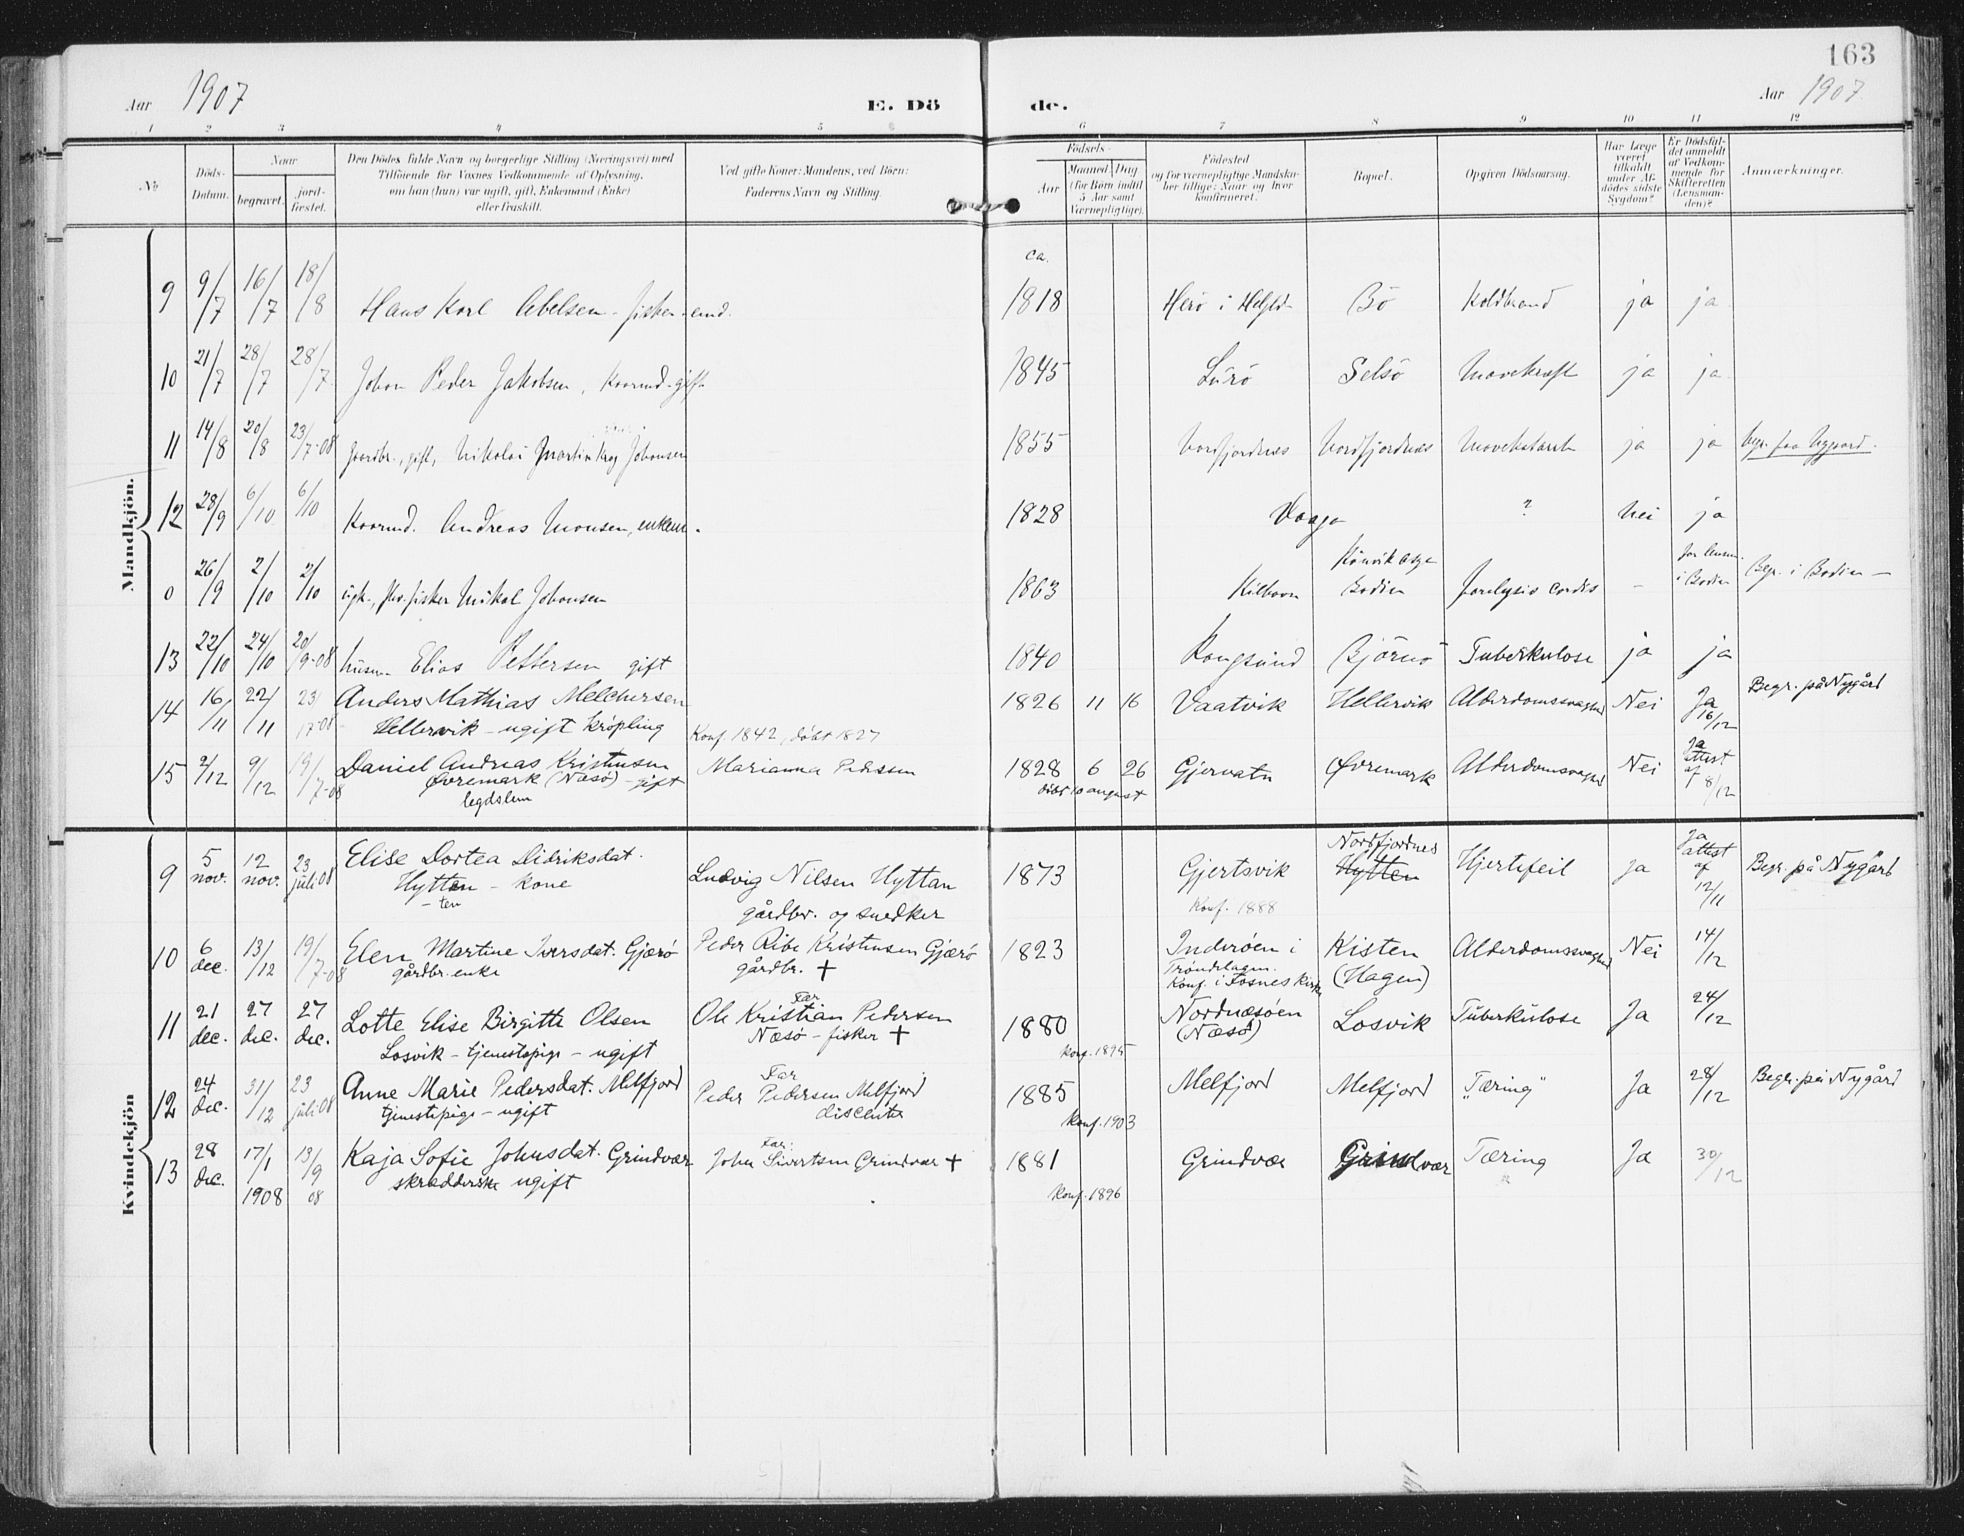 163
Aar 1907 E. Dö de. Aar 1907
1 2 3 4 5 6 7 8 9 10 11 12
No
Döds-Datum.
Naar
begravet. jordfæstet.
Den Dödes fulde Navn og borgerlige Stilling (Næringsvei) med
Tilföiende for Voxnes Vedkommende af Oplysning,
om han (hun) var ugift, gift, Enkemand (Enke)
eller fraskilt.
Ved gifte Koner: Mandens, ved Börn:
Faderens Navn og Stilling.
Födsels-
Aar Maaned Dag
(for Börn indtil 5 Aar samt Værnepligtige).
Födested
og for værnepligtige Mandskaber tillige: Naar og hvor konfirmeret.
Bopæl.
Opgiven Dödsaarsag.
Har Læge været tilkaldt under Afdödes sidste Sygdom?
Er Dödsfaldet anmeldt af Vedkommende for Skifteretten (Lensmanden)?
Anmærkninger.
Mandkjön.
ca.
9 9/7 16/7 18/8 Hans Karl Abelsen - fisker - emd. 1818 Herö i Helgld Bö Koldbrand ja ja
10 21/7 28/7 28/7 Johan Peder Jakobsen, kaarmd - gift 1845 Lurö Selsö Mavekræft ja ja
11 14/8 20/8 23/7-08 Gaardbr., gift, Nikolai Martin Krog Johansen 1855 Nordfjordnes Nordfjordnæs Mavekatarrh ja ja begr. paa Nygaard.
12 28/9 6/10 6/10 Kaarmd. Andreas Monsen, enkem. 1828 Vaaga ? Nei ja
0 26/9 2/10 2/10 ugift, fisker Nikal Johansen 1863 Kilboan Rönvik asyl Bodin Paralysis cordis - for lensm. i Bodin Begr. i Bodin -
13 22/10 24/10 20/9-08 husm. Elias Pettersen gift 1840 Rangsund Bjørnö Tuberkulose ja ja
14 16/11 22/11 23/7-08 Anders Mathias Melchersen 1826 11 16 Vaatvik Hellervik Alderdomssvaghed Nei Ja 16/12 Begr. på Nygård
Hellervik - ugift krøpling Konf. 1842, døbt 1827
15 2/12 9/12 19/7-08 Daniel Andreas Kristensen Marianna Pedersen 1828 6 26 Gjervatn Øvremark Alderdomssvaghed Nei Ja attest af 8/12
Øvremark (Næsö) - gift
legdslem 10 august
Kvindekjön
9 5 nov. 12 nov. 23 juli 08 Elise Dortea Didriksdat. Ludvig Nilsen Hyttan 1873 Gjertsvik Nordfjordnes Hytten Hjertefeil Ja Ja attest af 12/11 Begr. på Nygård
Hytten - kone
- ten gårdbr. og snedker Konf. 1888
10 6 dec. 13/12 19/7-08 Elen Martine Iversdat. Gjærö Peder Ribe Kristensen Gjærö 1823 Inderøen i Kisten Alderdomssvaghed Nei 14/12
gårdbr. enke gårdbr. + Trøndelagen. Konf. i Fosnes kirke (Hagen)
11 21 dec. 27 dec. 27 dec. Lotte Elise Birgitte Olsen Far Ole Kristian Pedersen 1880 Nordnæsöen Losvik Tuberkulose Ja 24/12
Losvik - tjenestepige - ugift Næsö - fisker + Konf. 1895 (Næsö)
12 24 dec. 31/12 23 juli 08 Anne Marie Pedersdat. Melfjord Far Peder Pedersen Melfjord 1885 Melfjord Melfjord „Tæring" Ja 28/12 Begr. på Nygård
tjenestepige - ugift dissenter Konf. 1903
13 28 dec. 17/1 1908 13/9 08 Kaja Sofie Johnsdat. Grindvær Far: John Sivertsen Grindvær + 1881 Grindvær Grindvær Tæring Ja 30/12
skrædderske ugift Konf. 1896